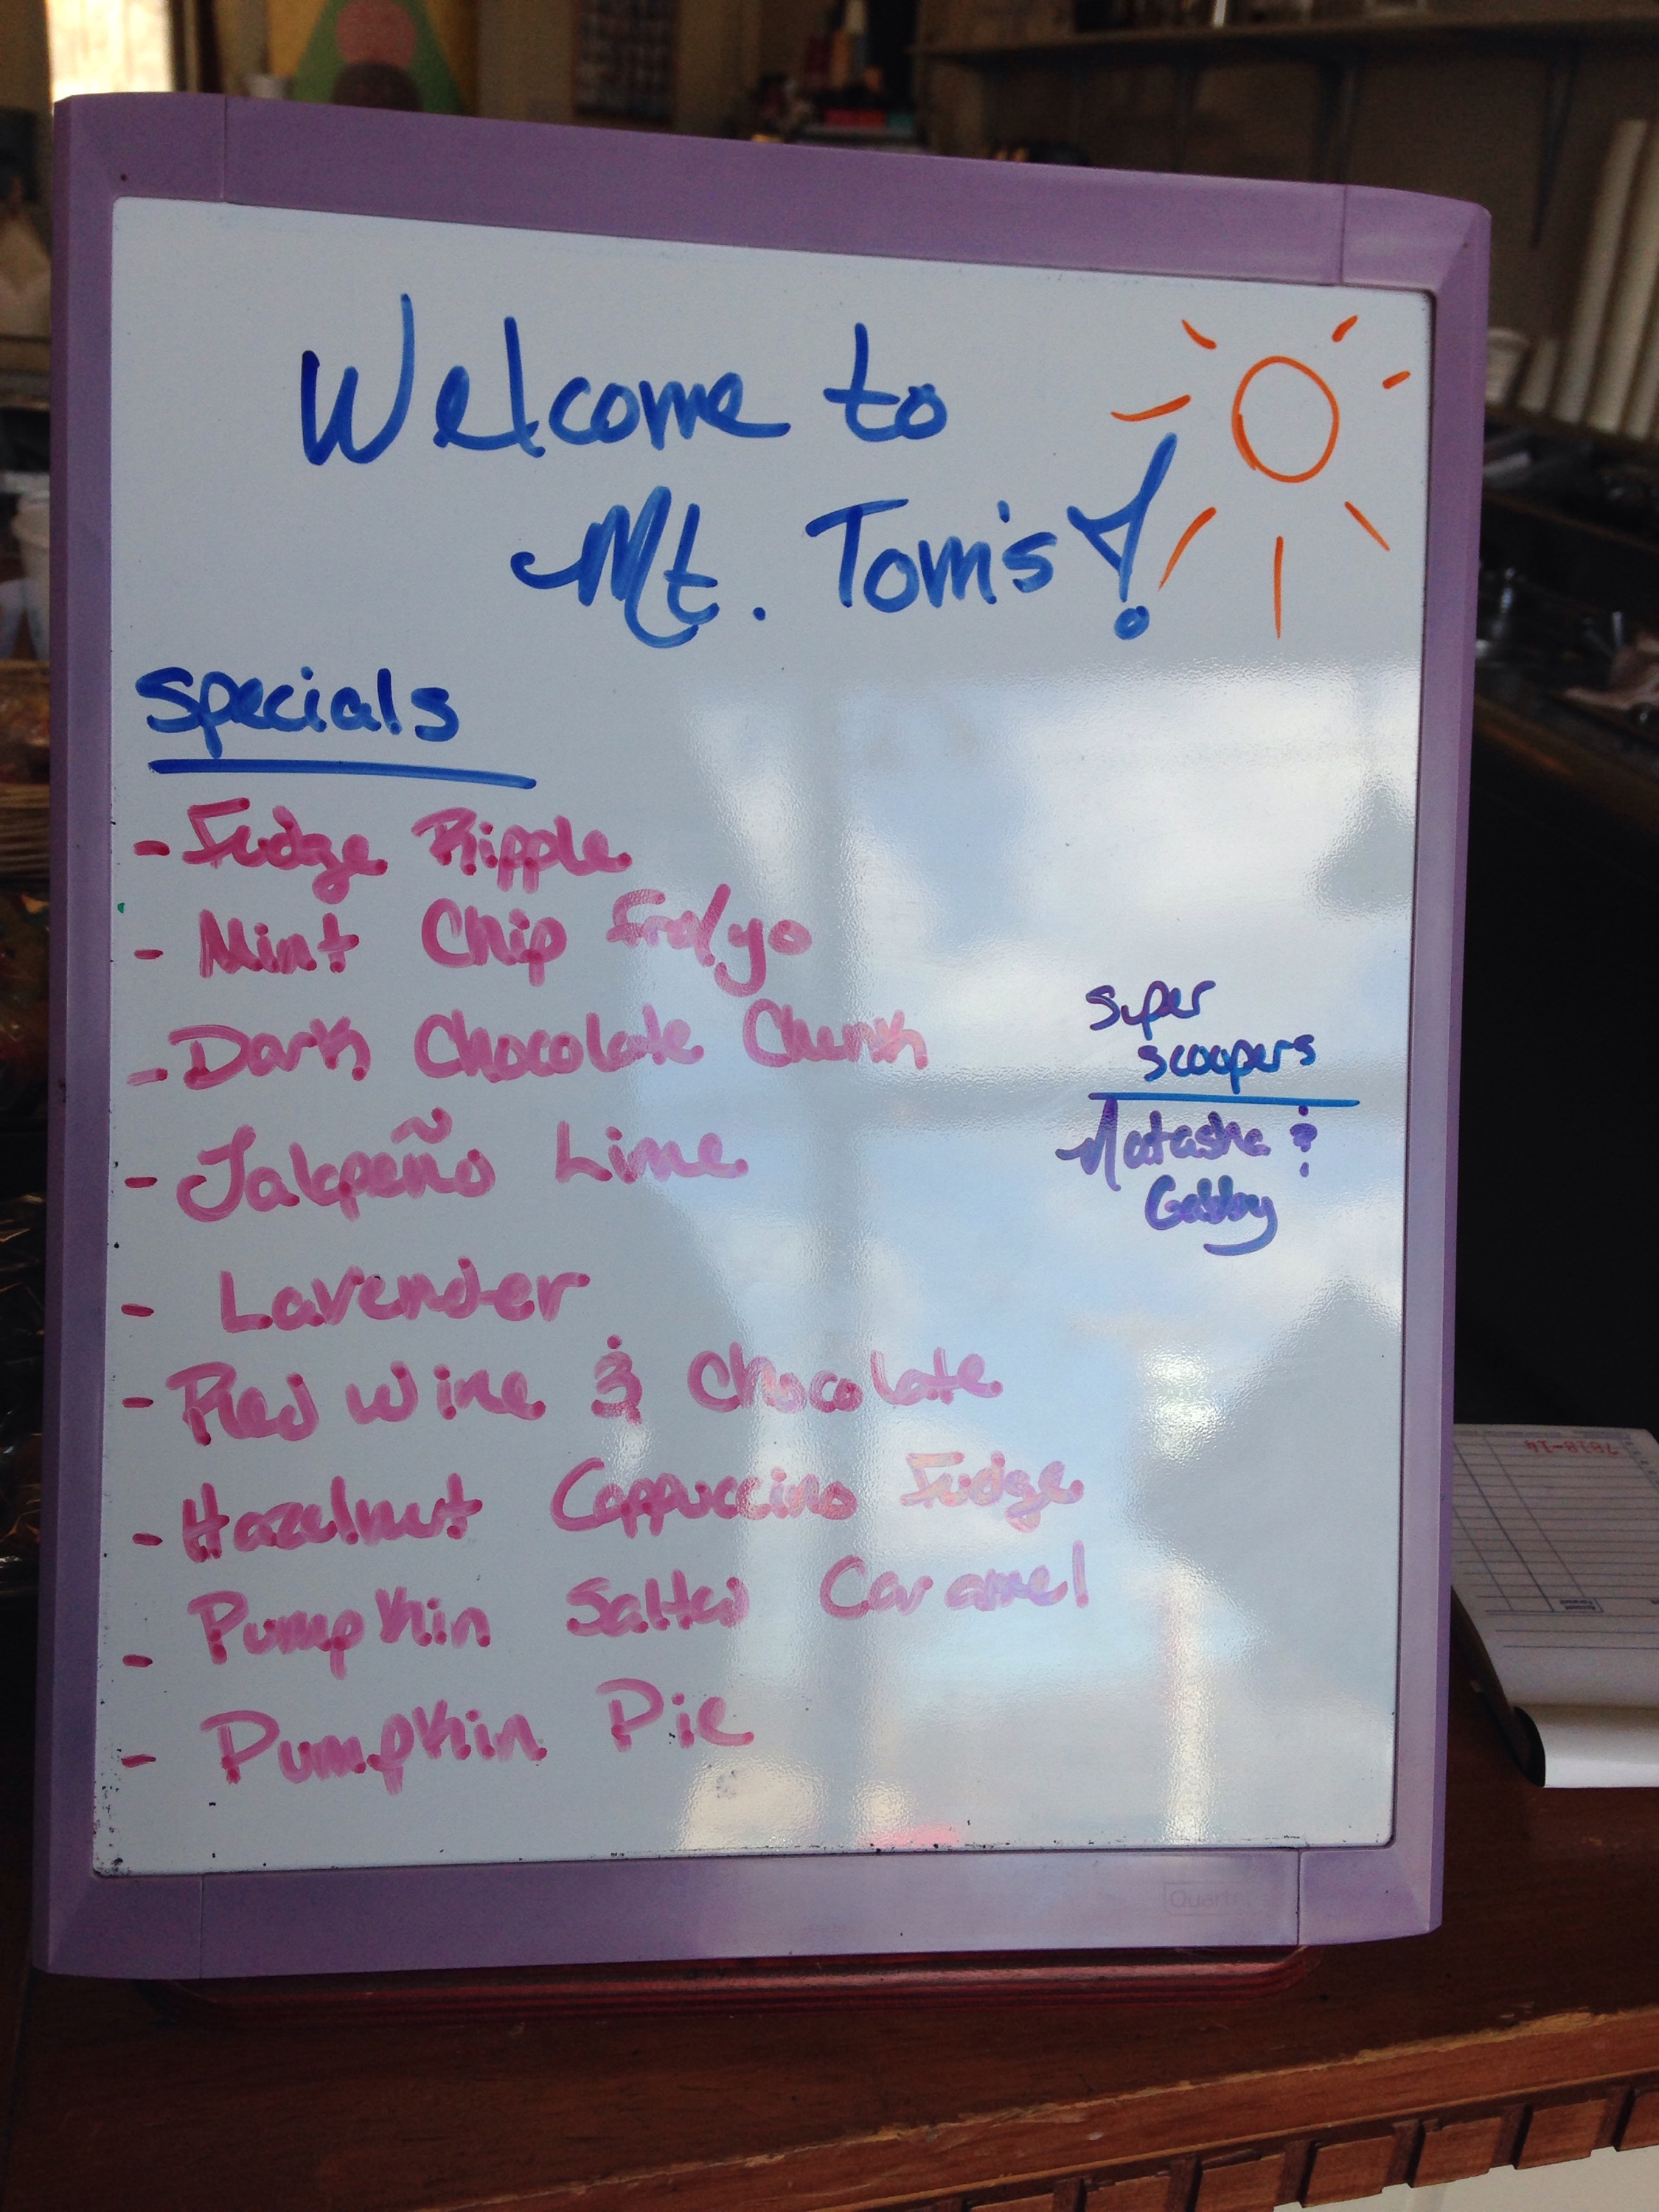 Welcome to
Mt. Tom's!
Specials
- Fudge Ripple
- Mint Chip Fro/yo
- Dark Chocolate Chunk
- Jalapeño Lime
- Lavender
- Red Wine & Chocolate
- Hazelnut Cappuccino Fudge
- Pumpkin Salted Caramel
- Pumpkin Pie
Super
Scoopers
Natasha &
Gabby
7818-14
Quartet